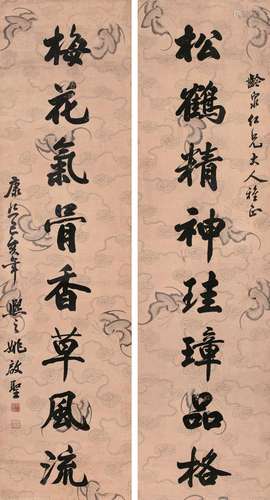 龄泉仁兄大人雅正
松鹤精神珪璋品格
梅花氣骨香草風流
康熙己亥年 熙之姚啟聖